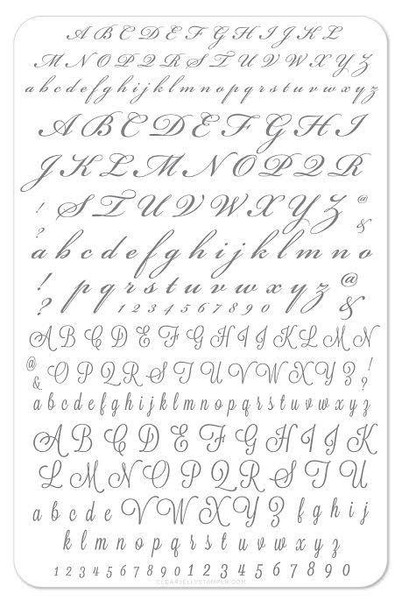 A B C D E F G H I J K L
M N O P Q R S T U V W X Y Z
a b c d e f g h i j k l m n o p q r s t u v w x y z
A B C D E F G H I
J K L M N O P Q R
! ? S T U V W X Y Z @ &
a b c d e f g h i j k l m n o
! ? p q r s t u v w x y z @ &
1 2 3 4 5 6 7 8 9 0
A B C D E F G H I J K L M N
@ & O P Q R S T U V W X Y Z ! ?
a b c d e f g h i j k l m n o p q r s t u v w x y z
A B C D E F G H I J K
L M N O P Q R S T U
a b c d e V W X Y Z f g h i j
k l m n o p q r s t u v w x y z
1 2 3 4 5 6 7 8 9 0 1 2 3 4 5 6 7 8 9 0